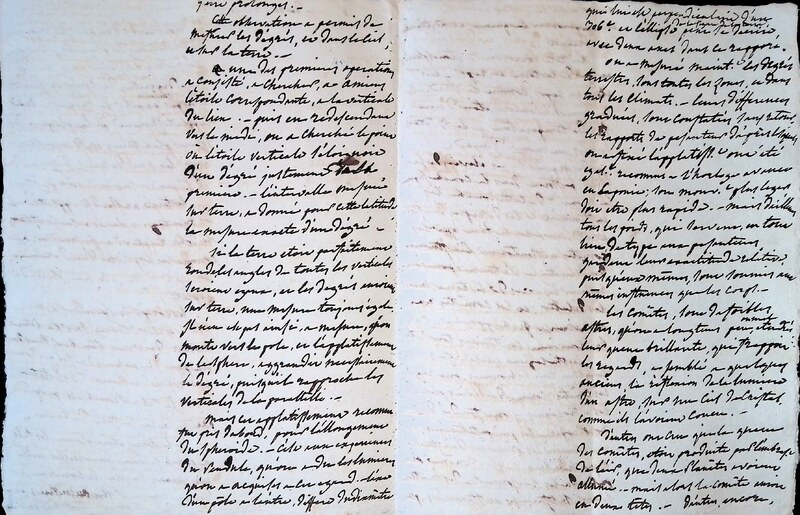 prolonges. —
Cette observation a permis de
mesurer les dégrés, et dans le ciel,
et sur la terre. —
une des premieres operations
a consisté, a chercher, a amiens
l'étoile correspondante, a la verticale
du lieu. — puis en redescendant
vers le midi, on a cherché le point
où l'étoile verticale s'éloignoit
d'un dégré justement de la
premiere. — l'intervalle mesuré
sur terre, a donné pour cette latitude
la mesure exacte d'un dégré. —
si la terre etoit parfaitement
ronde les angles de toutes les verticales
seroient egaux, et les dégrés auroient
sur terre, une mesure toujours egale.
Il n'en est pas ainsi, a mesure, qu'on
monte vers le pole, et l'applatissement
de la sphere, aggrandit necessairement
le dégré, puisqu'il rapproche les
verticales de la parallele. —
mais cet applatissement reconnu
fut pris d'abord, pour l'allongement
du spheroide. — C'est aux experiences
du pendule, qu'on a du les lumieres
qu'on a acquises a cet egard. l'axe
d'un pôle a l'autre, differe du diamètre
qui lui est perpendiculaire d'un
306e. et l'ellipse
avec deux axes dans ce rapport.
on a mesuré maint. les degrés
terrestres, sous toutes les zones, et dans
tous les climats. — leurs differences
graduées, sont constatées
les rapports de pesanteur
l'applatisst. a été
egalt. reconnu. — l'horloge avance
en laponie, sous mouvt. plus leger
doit etre plus rapide. — mais d'ailleurs
tous les poids, qui servent, en tout
lieu, de type aux pesanteurs,
gardent leur exactitude relative
puisqu'eux mêmes, sont soumis aux
mêmes influences que les corps. —
les Comètes, sont de foibles
astres, qu'on a longtems peu etudiés
leur queue brillante, qui frappoit
les regards, a semblé a quelques
anciens, la reflexion de la lumiere
d'un astre, pris sur ciel de cristal
comme ils l'avoient conçu. —
D'autres ont cru que la queue
des comètes, etoit produite par l'embrase
de l'air, que deux planetes avoient
allumé. — mais alors la comète auroit
eu deux tetes. — D'autres, encore,